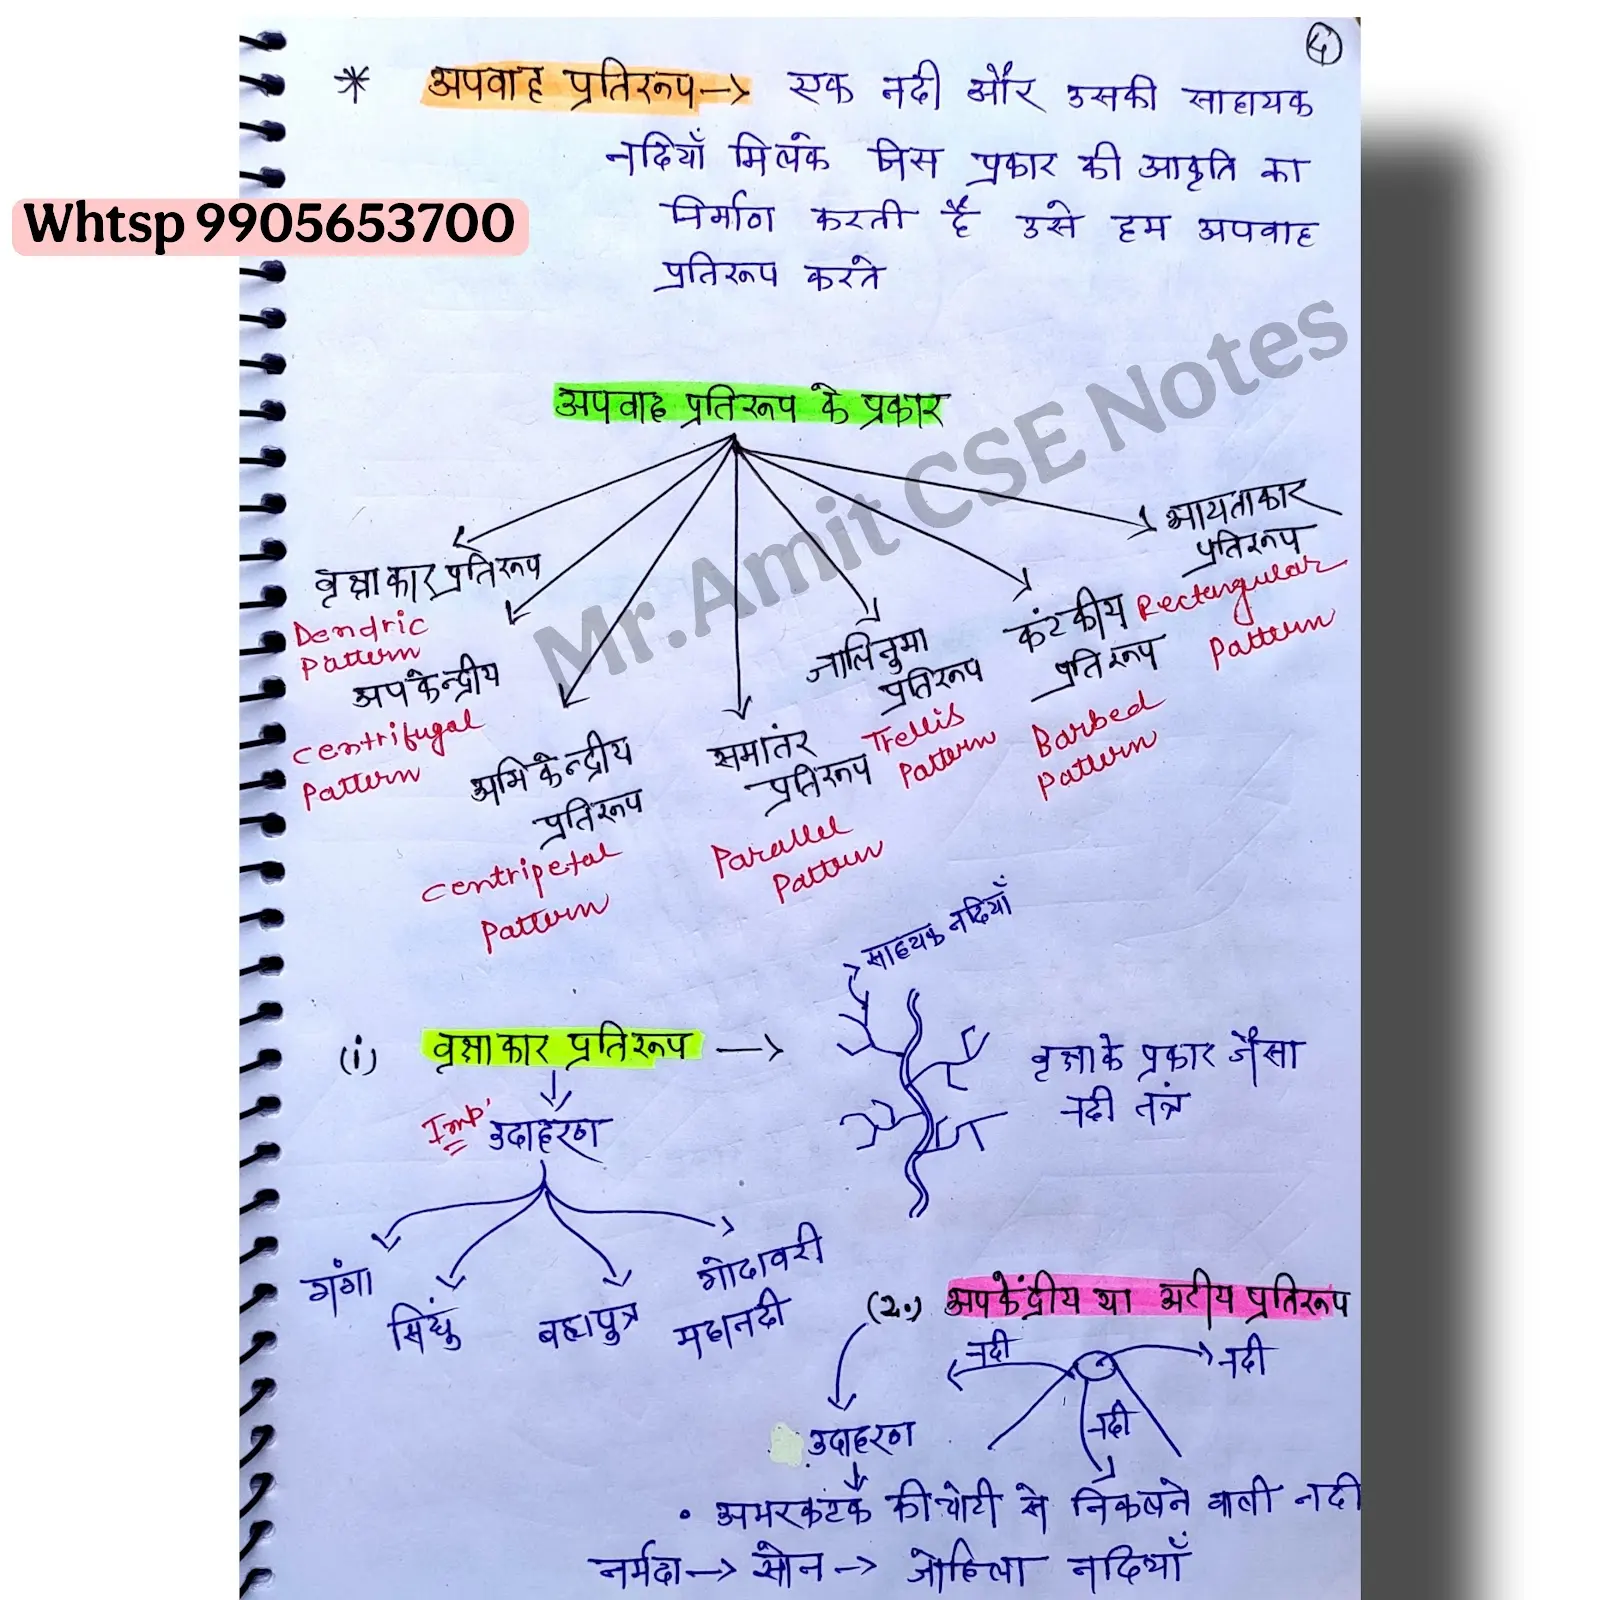 4
* अपवाह प्रतिरूप → एक नदी और उसकी साहायक
नदियाँ मिलके जिस प्रकार की आकृति का
निर्माण करती है उसे हम अपवाह
प्रतिरूप करते
Whtsp 9905653700
Mr.Amit CSE Notes
अपवाह प्रतिरूप के प्रकार
वृक्षाकार प्रतिरूप
Dendric
Pattern
अपकेन्द्रीय
Centrifugal
Pattern
अभिकेन्द्रीय
प्रतिरूप
Centripetal
Pattern
समातंर
प्रतिरूप
Parallel
Pattern
जालिनुमा
प्रतिरूप
Trellis
Pattern
कंटकीय
प्रतिरूप
Barbed
Pattern
आयताकार
प्रतिरूप
Rectangular
Pattern
(i) वृक्षाकार प्रतिरूप →
साहयक नदियाँ
वृक्षाके प्रकार जैसा
नदी तंत्र
Imp' उदाहरण
गंगा
सिंधु
ब्रह्मपुत्र
गोदावरी
महानदी
(2.) अपकेंद्रीय या अरीय प्रतिरूप
नदी
नदी
नदी
उदाहरण
• अमरकंटक की चोटी से निकलने वाली नदी
नर्मदा → सोन → जोहिला नदियाँ